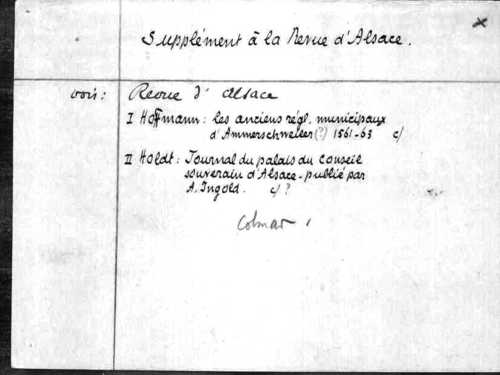 Supplément à la Revue d'Alsace.
voir: Revue d'Alsace
I Hoffmann: les anciens régl. municipaux
d'Ammerschweier (?) 1561-63 c/
II Holdt: Journal du palais du Conseil
souverain d'Alsace - publié par
A. Ingold. c/ ?
Colmar